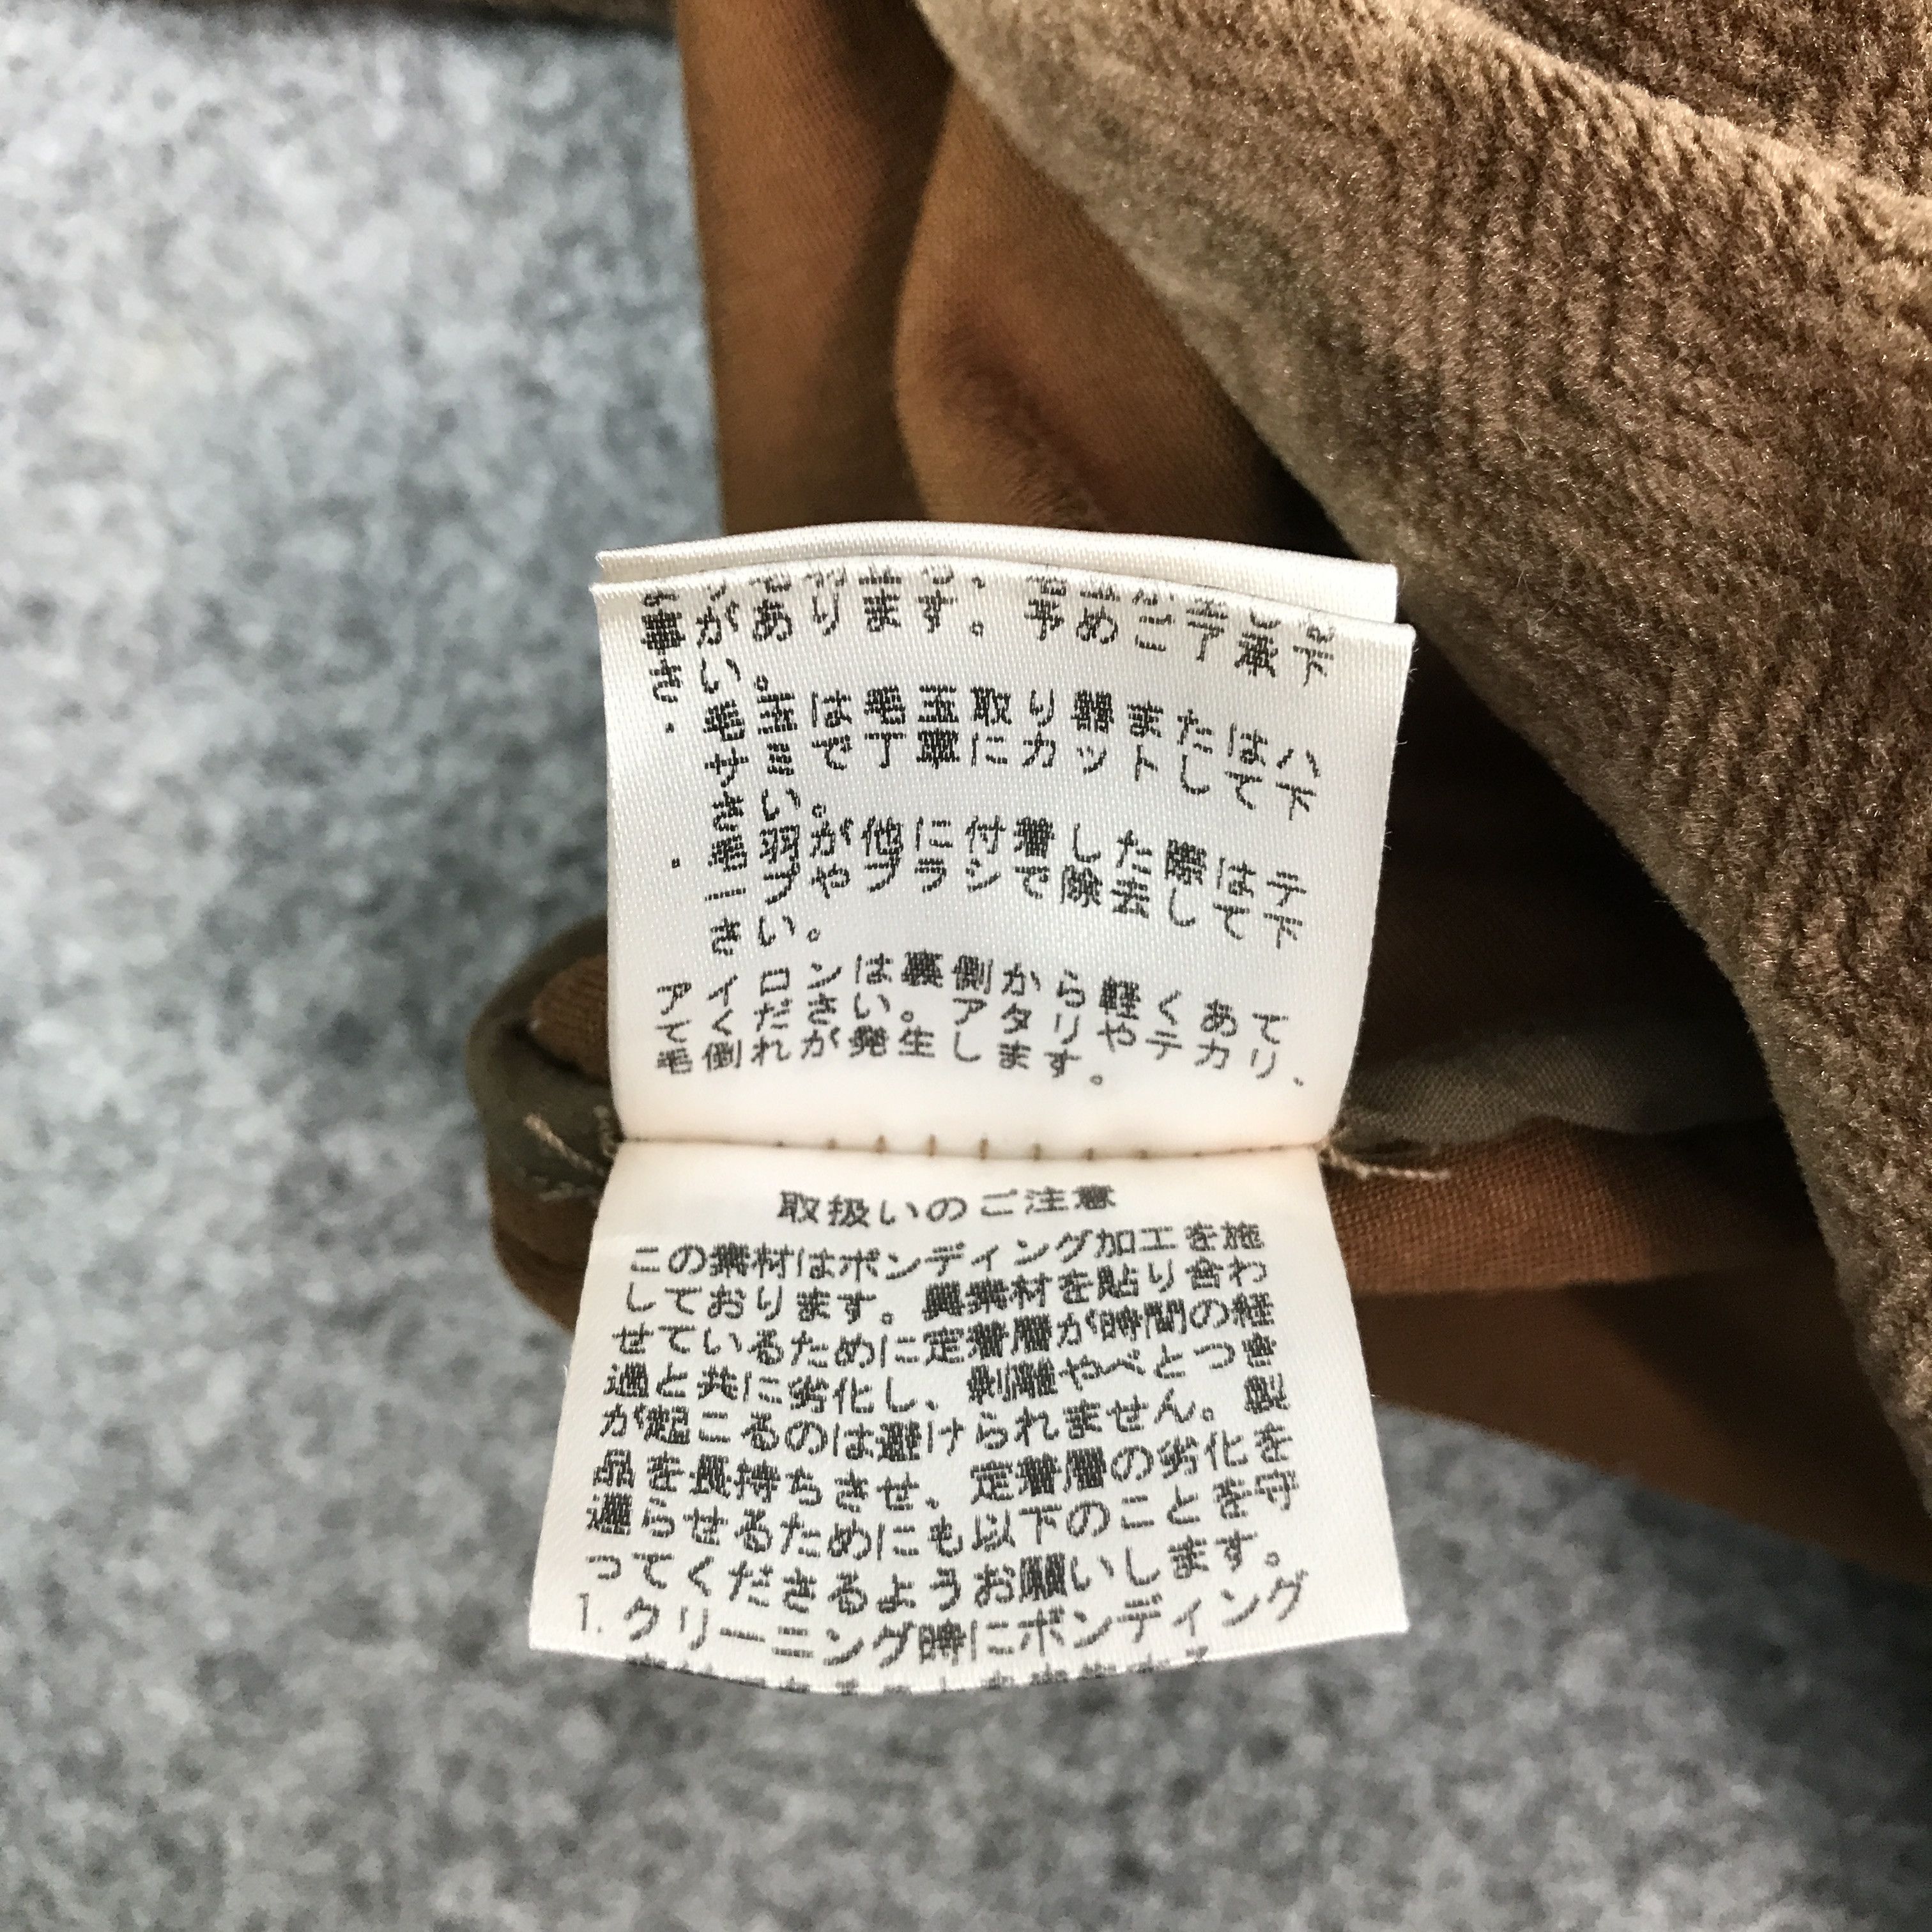 事があります。予めご了承下
さい。
・毛玉は毛玉取り器またはハ
サミで丁寧にカットして下
さい。
・毛羽が他に付着した際はテ
ープやブラシで除去して下
さい。
アイロンは裏側から軽くあて
てください。アタリやテカリ、
毛倒れが発生します。
取扱いのご注意
この素材はボンディング加工を施
しております。異素材を貼り合わ
せているために定着層が時間の経
過と共に劣化し、剥離やべとつき
が起こるのは避けられません。製
品を長持ちさせ、定着層の劣化を
遅らせるためにも以下のことを守
ってくださるようお願いします。
1.クリーニング時にボンディング